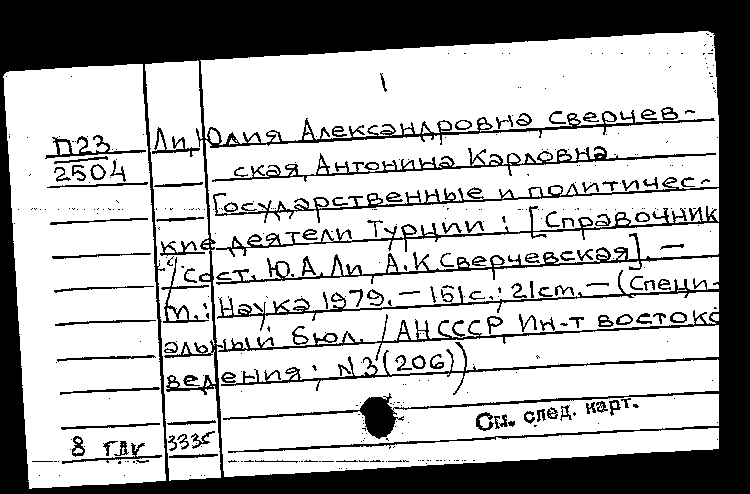 1
П23 Ли, Юлия Александровна, Сверчев-
2504 ская, Антонина Карловна.
Государственные и политичес-
кие деятели Турции : [Справочник
/ Сост. Ю.А.Ли, А.К.Сверчевская]. —
М.: Наука, 1979. — 151с.; 21см. — (Специ-
альный бюл. / АН СССР, Ин-т востоко
ведения; N3(206)).
См. след. карт.
8